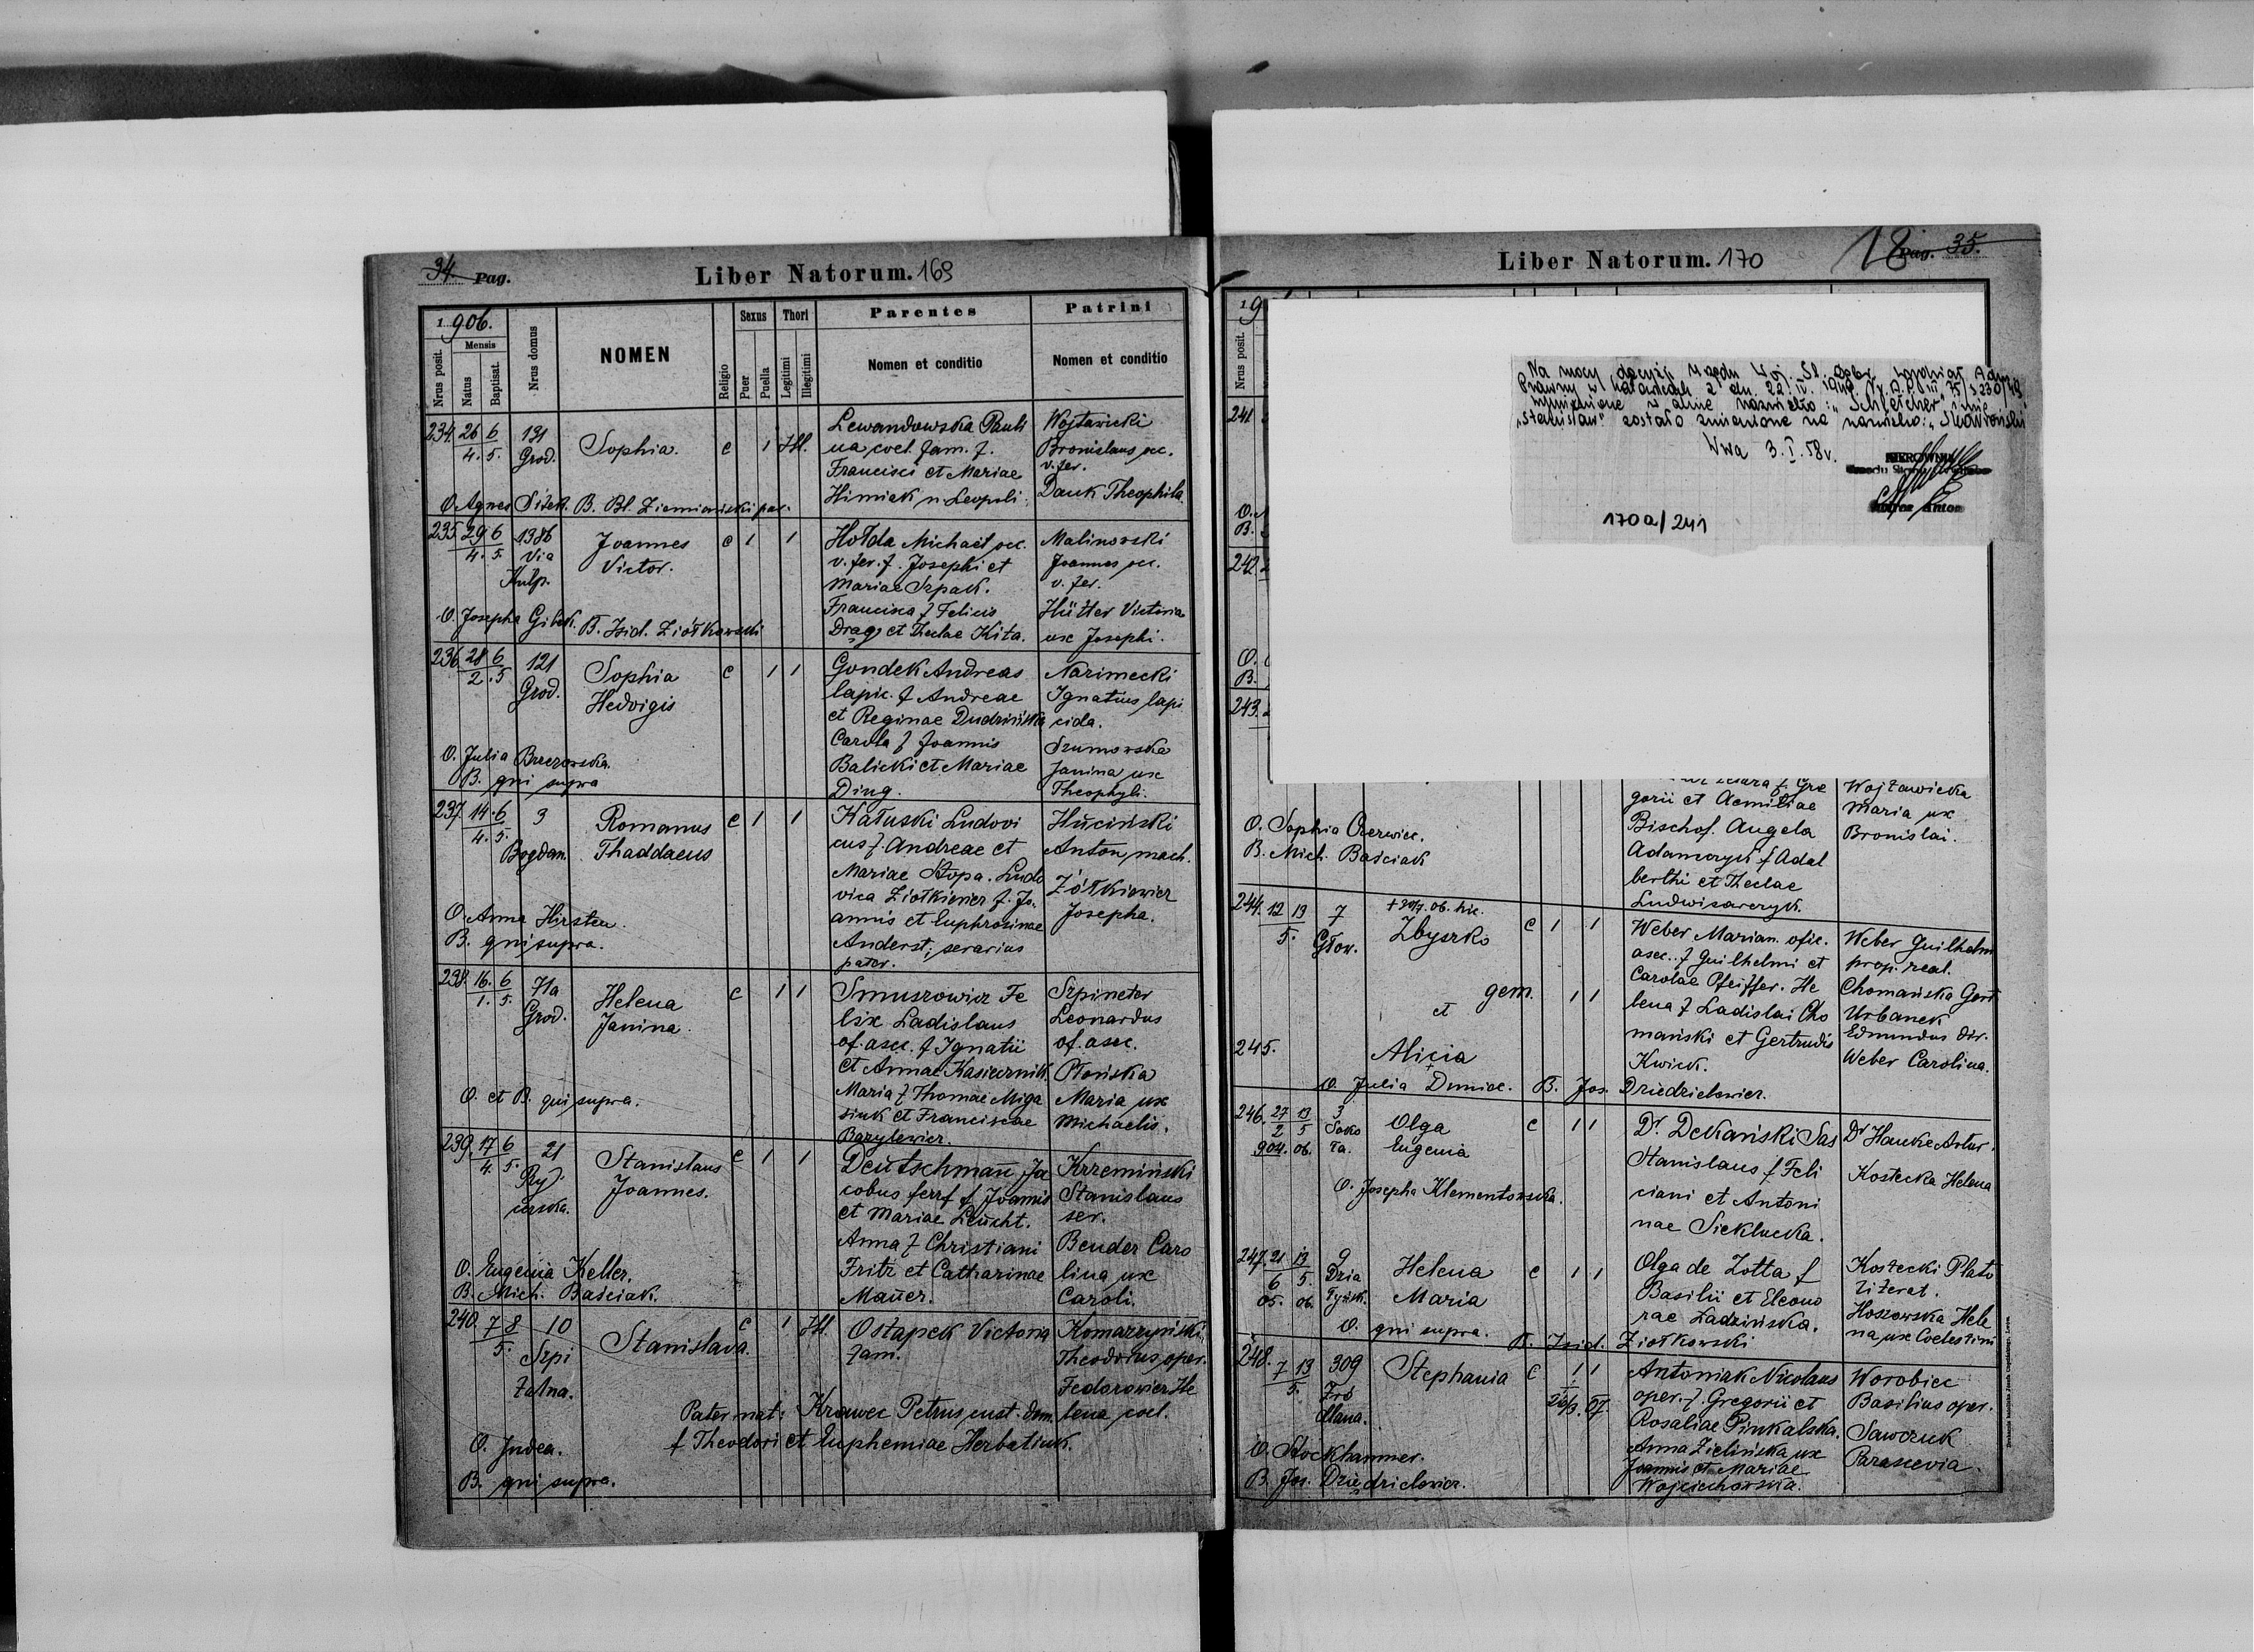 34. Pag.
Liber Natorum. 169
1906.
Nrus posit.
Mensis
Natus
Baptisat.
Nrus domus
NOMEN
Religio
Sexus
Puer
Puella
Thori
Legitimi
Illegitimi
Parentes
Nomen et conditio
Patrini
Nomen et conditio
234. 26/4. 6/5. 131 Grod.
Sophia.
c 1 Ill.
Lewandowska Pauli
na coel. fam. f.
Francisci et Mariae
Himiak n Leopoli.
Wojtawicki
Bronislaus oec.
v. fer.
Dauk Theophila
O. Agnes Sitek. B. Bl. Ziemiański par.
235. 29/4. 6/5 1386 Via
Kulp.
Joannes
Victor.
c 1 1
Hołda Michael oec.
v. fer. f. Josephi et
Mariae Szpak.
Francisca f Felicis
Drag et Theclae Kita.
Malinowski
Joannes oec.
v. fer.
Hütter Victoria
ux Josephi.
O. Josepha Gibek. B. Isid. Ziółkowski
236. 28/2. 6/5 121
Grod.
Sophia
Hedvigis
c 1 1
Gondek Andreas
lapic. f Andreae
et Reginae Dudzińska
Carola f Joannis
Balicki et Mariae
Ding.
Narimecki
Ignatius lapi
cida.
Szumowska
Janina ux
Theophyli.
O. Julia Brezowska.
B. qui supra
237. 14/4. 6/5. 3
Bogdan.
Romanus
Thaddaeus
c 1 1
Hałuski Ludovi
cus f. Andreae et
Mariae Stopa. Ludo
vica Ziołkiewicz f. Jo.
annis et Euphrosinae
Anderst; serarius
pater.
Huciński
Anton mach.
Żółkiewicz
Josepha.
O. Anna Hirsten.
B. qui supra.
238. 16/1. 6/5. 71a
Grod.
Helena
Janina.
c 1 1
Smuszowicz Fe
lix Ladislaus
of. asec. f Ignatii
et Annae Kasiczernik.
Maria f Thomae Miga
siuk et Franciscae
Bazylewicz.
Szpineter
Leonardus
of. asec.
Płońska
Maria ux
Michaelis.
O. et B. qui supra.
239. 17/4 6/5. 21
Stanislaus
Joannes.
c 1 1
Deutschmann Ja
cobus ferrf f Joannis
et Mariae Leucht.
Anna f Christiani
Fritz et Catharinae
Mauer.
Krzemiński
Stanislaus
ser.
Bender Caro
lina ux
Caroli.
O. Eugenia Keller.
B. Mich. Baściak.
240. 7/5. 8 10
Szpi
talna.
Stanislava.
c 1 Ill.
Ostapek Victoria
fam.
Komarzyński
Theodorus oper.
Fedorowicz He
lena coel.
Pater nat: Krawec Petrus cust. dom.
f Theodori et Euphemiae Herbatiuk.
O. Judea.
B. qui supra.
Liber Natorum. 170
18 Pag. 35.
19
Nrus posit.
241.
242.
243.
O.
B.
O.
B.
22.IV.1949
"Schleicher" imię
"Stanisław" zostało zmienione na nazwisko: "Skowroński"
Wwa 3.I.58r.
KIEROWNIK
170a/241
gorii et Aemiliae
Bischof. Angela
Adamczyk f Adal
berthi et Theclae
Ludwisarczyk.
Wojtawicka
Maria ux
Bronislai.
O. Sophia Czerwiec.
B. Mich. Baściak
244. 12 13/5. 7
Głow.
Zbyszko
c 1 1
gem.
et 1 1
245.
Alicia
Weber Marian. ofic.
asec. f Guilhelmi et
Carolae Pfeiffer. He
lena f Ladislai Cho
mański et Gertrudis
Kwiek.
Weber Guilhelm
prop. real.
Chomańska Gert
Urbanek
Edmundus dir.
Weber Carolina.
O. Julia Duniec. B. Jos. Dziedzielewicz.
246. 27/2 904. 13/5 06. 3
Soko
ła.
Olga
Eugenia
c 1 1
Dr. Dekański Sas
Stanislaus f Feli
ciani et Antoni
nae Siekłucka.
Dr Hauke Artur.
Kostecka Helena
O. Josepha Klementowska.
247. 21/6 05. 13/5 06. 9
Dzia
łyńsk.
Helena
Maria
c 1 1
Olga de Zotta f
Basilii et Eleono
rae Ladzińska.
Kostecki Plato
literat.
Hoszowska Hele
na ux Coelestini
O. qui supra. B. Isid. Ziołkowski
248. 7 13/5. 309
Stephania
c 1 1
Antoniak Nicolaus
oper. f. Gregorii et
Rosaliae Pinkalska.
Anna Zielińska ux
Joannis et Mariae
Wojciechowska.
Worobiec
Basilius oper.
Sawczuk
Parascevia.
O. Stockhammer.
B. Jos. Dziedzielewicz.